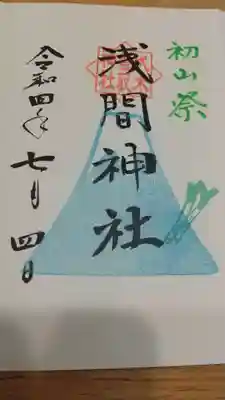 初山祭
浅間神社
令和四年七月四日